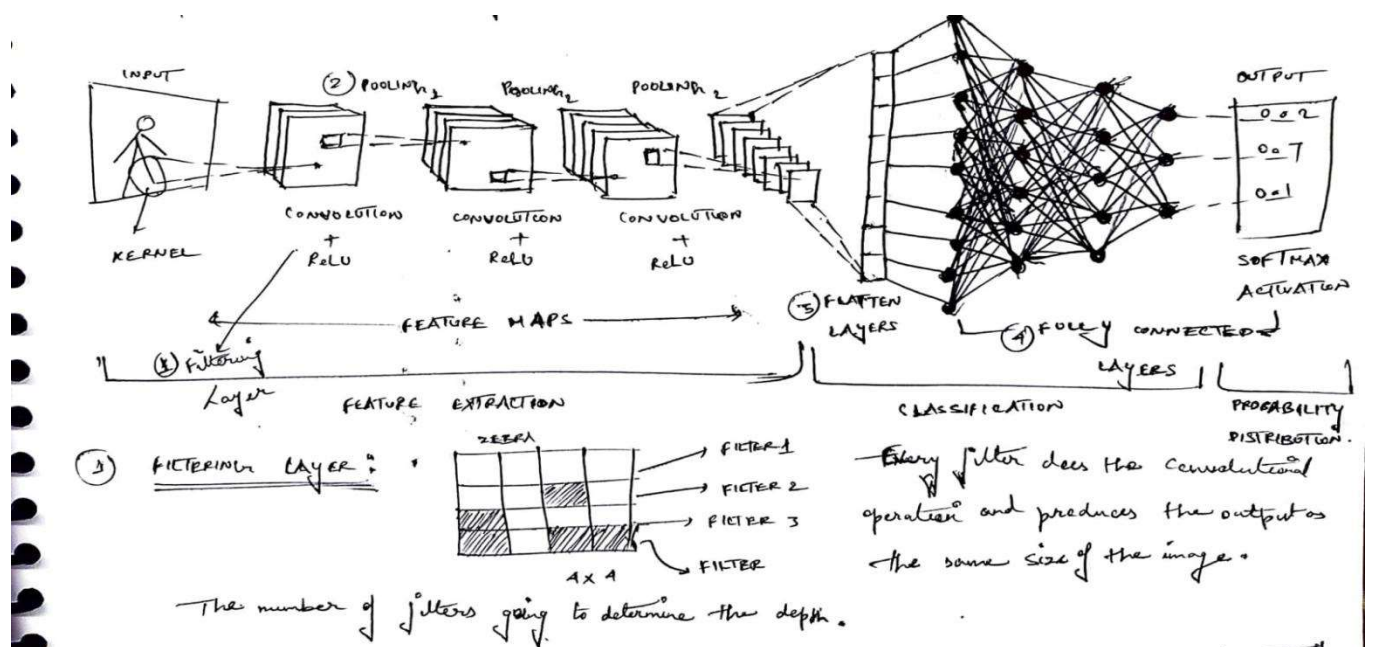 INPUT
② POOLING 1
POOLING 2
POOLING 2
OUTPUT
0.2
0.7
0.1
KERNEL
CONVOLUTION
+
ReLU
CONVOLUTION
+
ReLU
CONVOLUTION
+
ReLU
SOFTMAX
ACTIVATION
FEATURE MAPS
③ FLATTEN
LAYERS
④ FULLY CONNECTED
LAYERS
① Filtering
Layer
FEATURE EXTRACTION
CLASSIFICATION
PROBABILITY
DISTRIBUTION.
① FILTERING LAYER :
ZEBRA
FILTER 1
FILTER 2
FILTER 3
FILTER
4 x 4
Every filter does the convolutional
operation and produces the output as
the same size of the image.
The number of filters going to determine the depth.